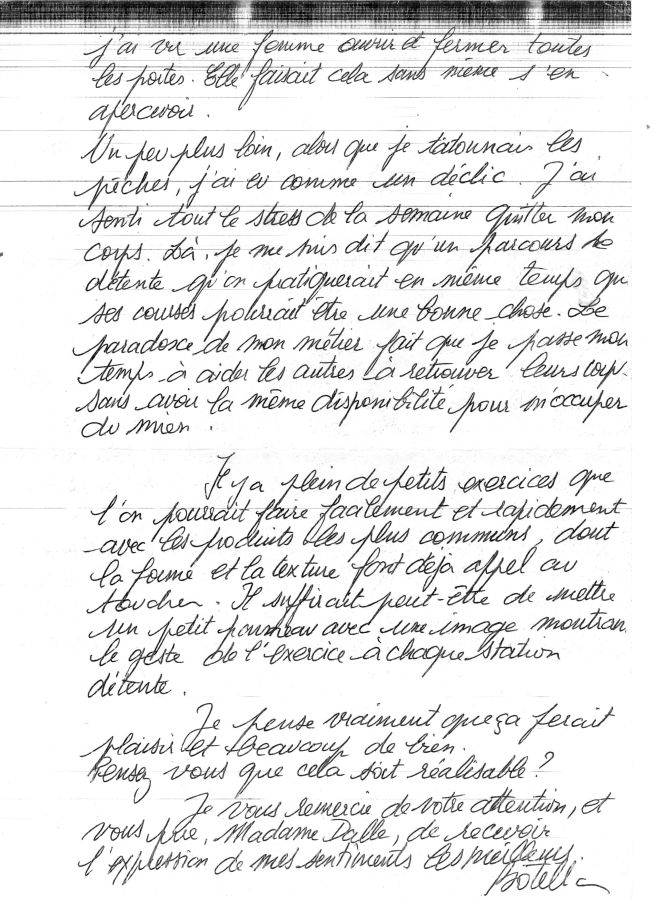 j'ai vu une femme ouvrir et fermer toutes
les portes. Elle faisait cela sans même s'en
apercevoir.
Un peu plus loin, alors que je tâtonnais les
pêches, j'ai eu comme un déclic. J'ai
senti tout le stress de la semaine quitter mon
corps. Là, je me suis dit qu'un parcours de
détente qu'on pratiquerait en même temps que
ses courses pourrait être une bonne chose. Le
paradoxe de mon métier fait que je passe mon
temps à aider les autres à retrouver leurs corps
sans avoir la même disponibilité pour m'occuper
du mien.
Il y a plein de petits exercices que
l'on pourrait faire facilement et rapidement
avec les produits les plus communs, dont
la forme et la texture font déjà appel au
toucher. Il suffirait peut-être de mettre
un petit panneau avec une image montran
le geste de l'exercice à chaque station
détente.
Je pense vraiment que ça ferait
plaisir et beaucoup de bien.
Pensez vous que cela soit réalisable?
Je vous remercie de votre attention, et
vous prie, Madame Dalle, de recevoir
l'expression de mes sentiments les meilleurs.
Botella